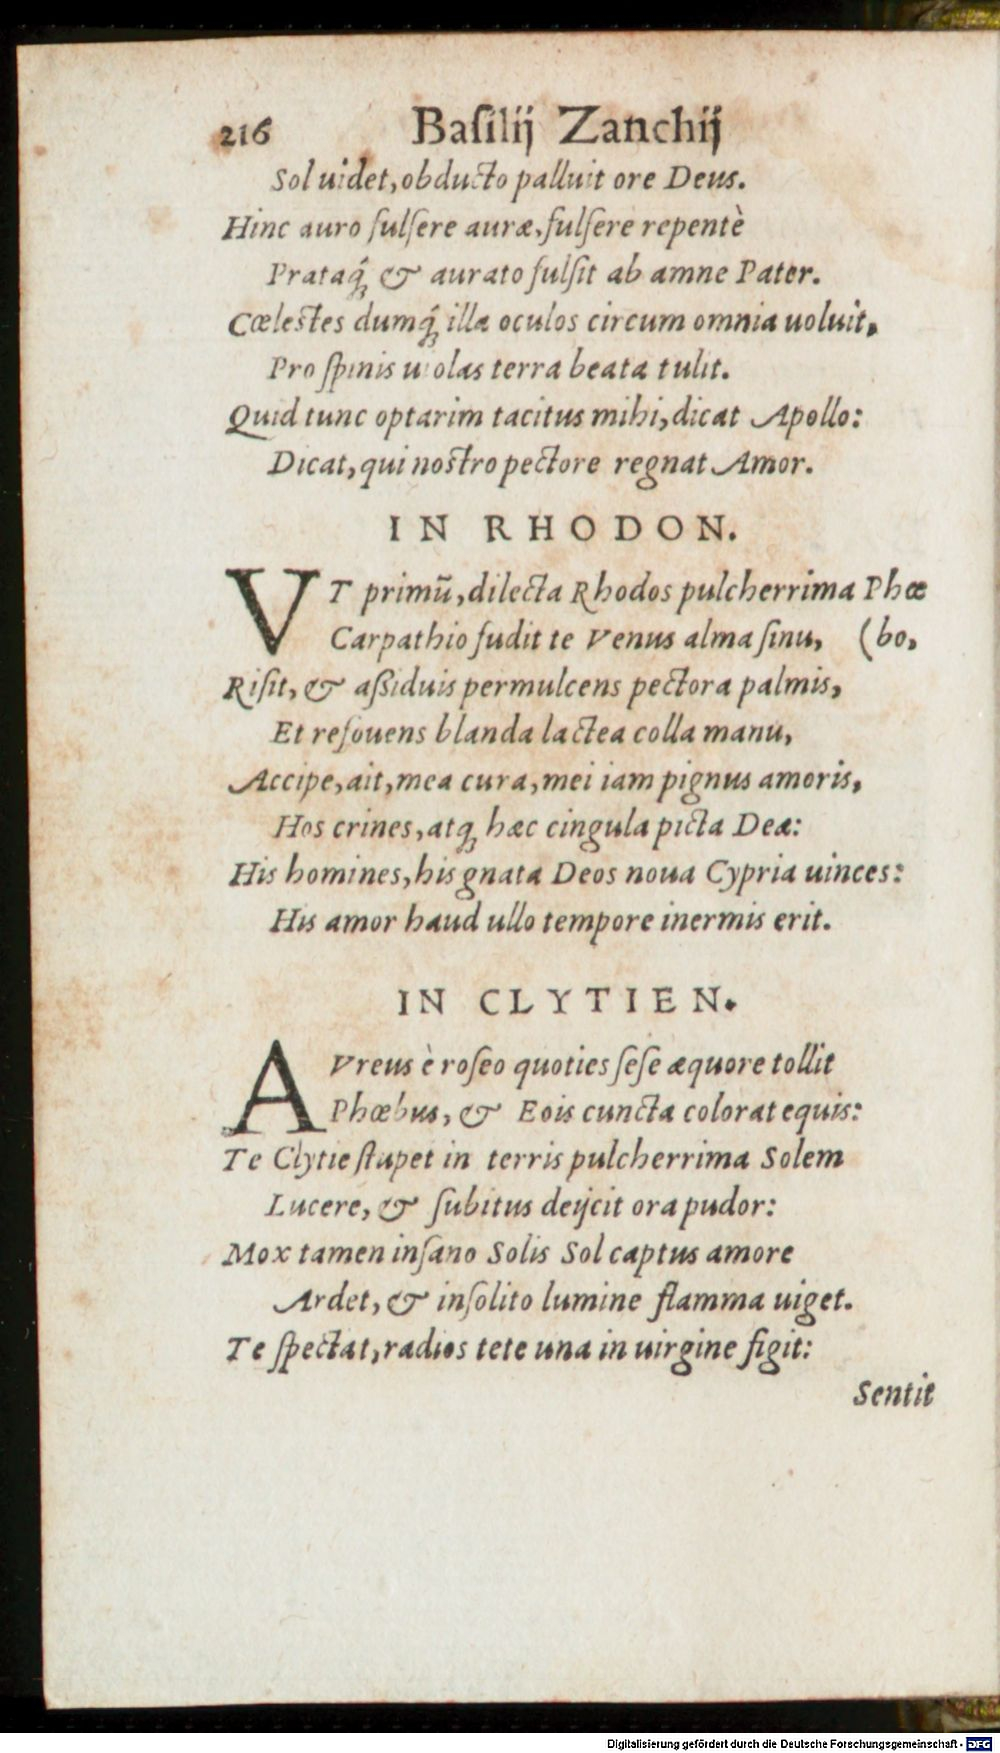 216 Baſilij Zanchij
Sol uidet, obducto palluit ore Deus.
Hinc auro fulſere auræ, fulſere repentè
Prataq́ꝫ & aurato fulſit ab amne Pater.
Cœlestes dumq́ꝫ illa oculos circum omnia uoluit,
Pro ſpinis uiolas terra beata tulit.
Quid tunc optarim tacitus mihi, dicat Apollo:
Dicat, qui nostro pectore regnat Amor.
IN RHODON.
VT primũ, dilecta Rhodos pulcherrima Phœ
Carpathio fudit te Venus alma ſinu, (bo,
Riſit, & aßiduis permulcens pectora palmis,
Et refouens blanda lactea colla manu,
Accipe, ait, mea cura, mei iam pignus amoris,
Hos crines, atqꝫ hæc cingula picta Deæ:
His homines, his gnata Deos noua Cypria uinces:
His amor haud ullo tempore inermis erit.
IN CLYTIEN.
AVreus è roſeo quoties ſeſe æquore tollit
Phœbus, & Eois cuncta colorat equis:
Te Clytie ſtupet in terris pulcherrima Solem
Lucere, & ſubitus deijcit ora pudor:
Mox tamen inſano Solis Sol captus amore
Ardet, & inſolito lumine flamma uiget.
Te ſpectat, radios tete una in uirgine figit:
Sentit
Digitalisierung gefördert durch die Deutsche Forschungsgemeinschaft - DFG